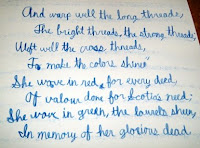 And warp well the long threads,
The bright threads, the strong threads;
Woft well the cross threads,
To make the colors shine"
She wove in red for every deed,
Of valour done for Scotia's need;
She wove in green, the laurels sheen,
In memory of her glorious dead.